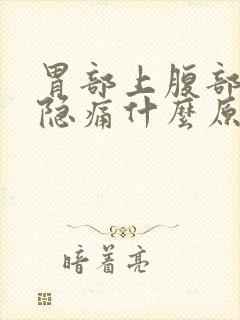 胃部上腹部
隐痛什麼原
暗着亮